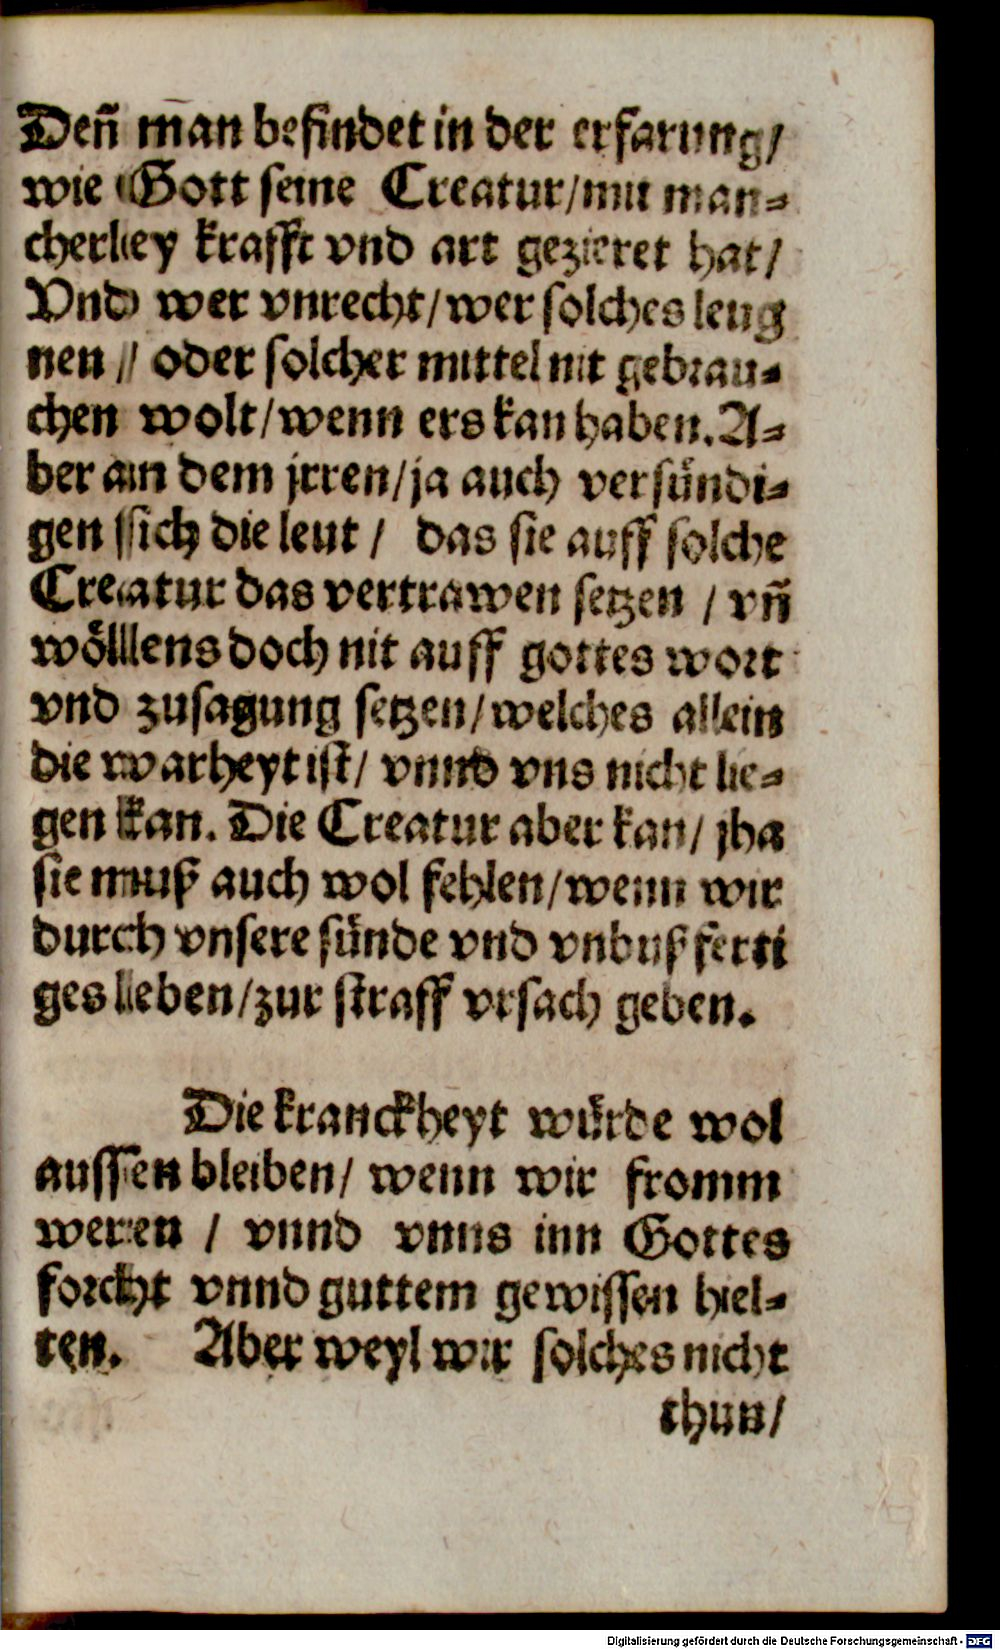 Deñ man befindet in der erfarung/
wie Gott seine Creatur/mit man-
cherley krafft vnd art gezieret hat/
Vnd wer vnrecht/wer solches leug
nen / oder solcher mittel nit gebrau-
chen wolt/wenn ers kan haben. A-
ber an dem jrren/ja auch versündi-
gen sich die leut / das sie auff solche
Creatur das vertrawen setzen / vñ
wöllens doch nit auff gottes wort
vnd zusagung setzen/welches allein
die warheyt ist/ vnnd vns nicht lie-
gen kan. Die Creatur aber kan/ jha
sie muß auch wol fehlen/wenn wir
durch vnsere sünde vnd vnbußferti
ges leben/zur straff vrsach geben.
Die kranckheyt würde wol
aussen bleiben/ wenn wir fromm
weren / vnnd vnns inn Gottes
forcht vnnd guttem gewissen hiel-
ten. Aber weyl wir solches nicht
thun/
Digitalisierung gefördert durch die Deutsche Forschungsgemeinschaft - DFG